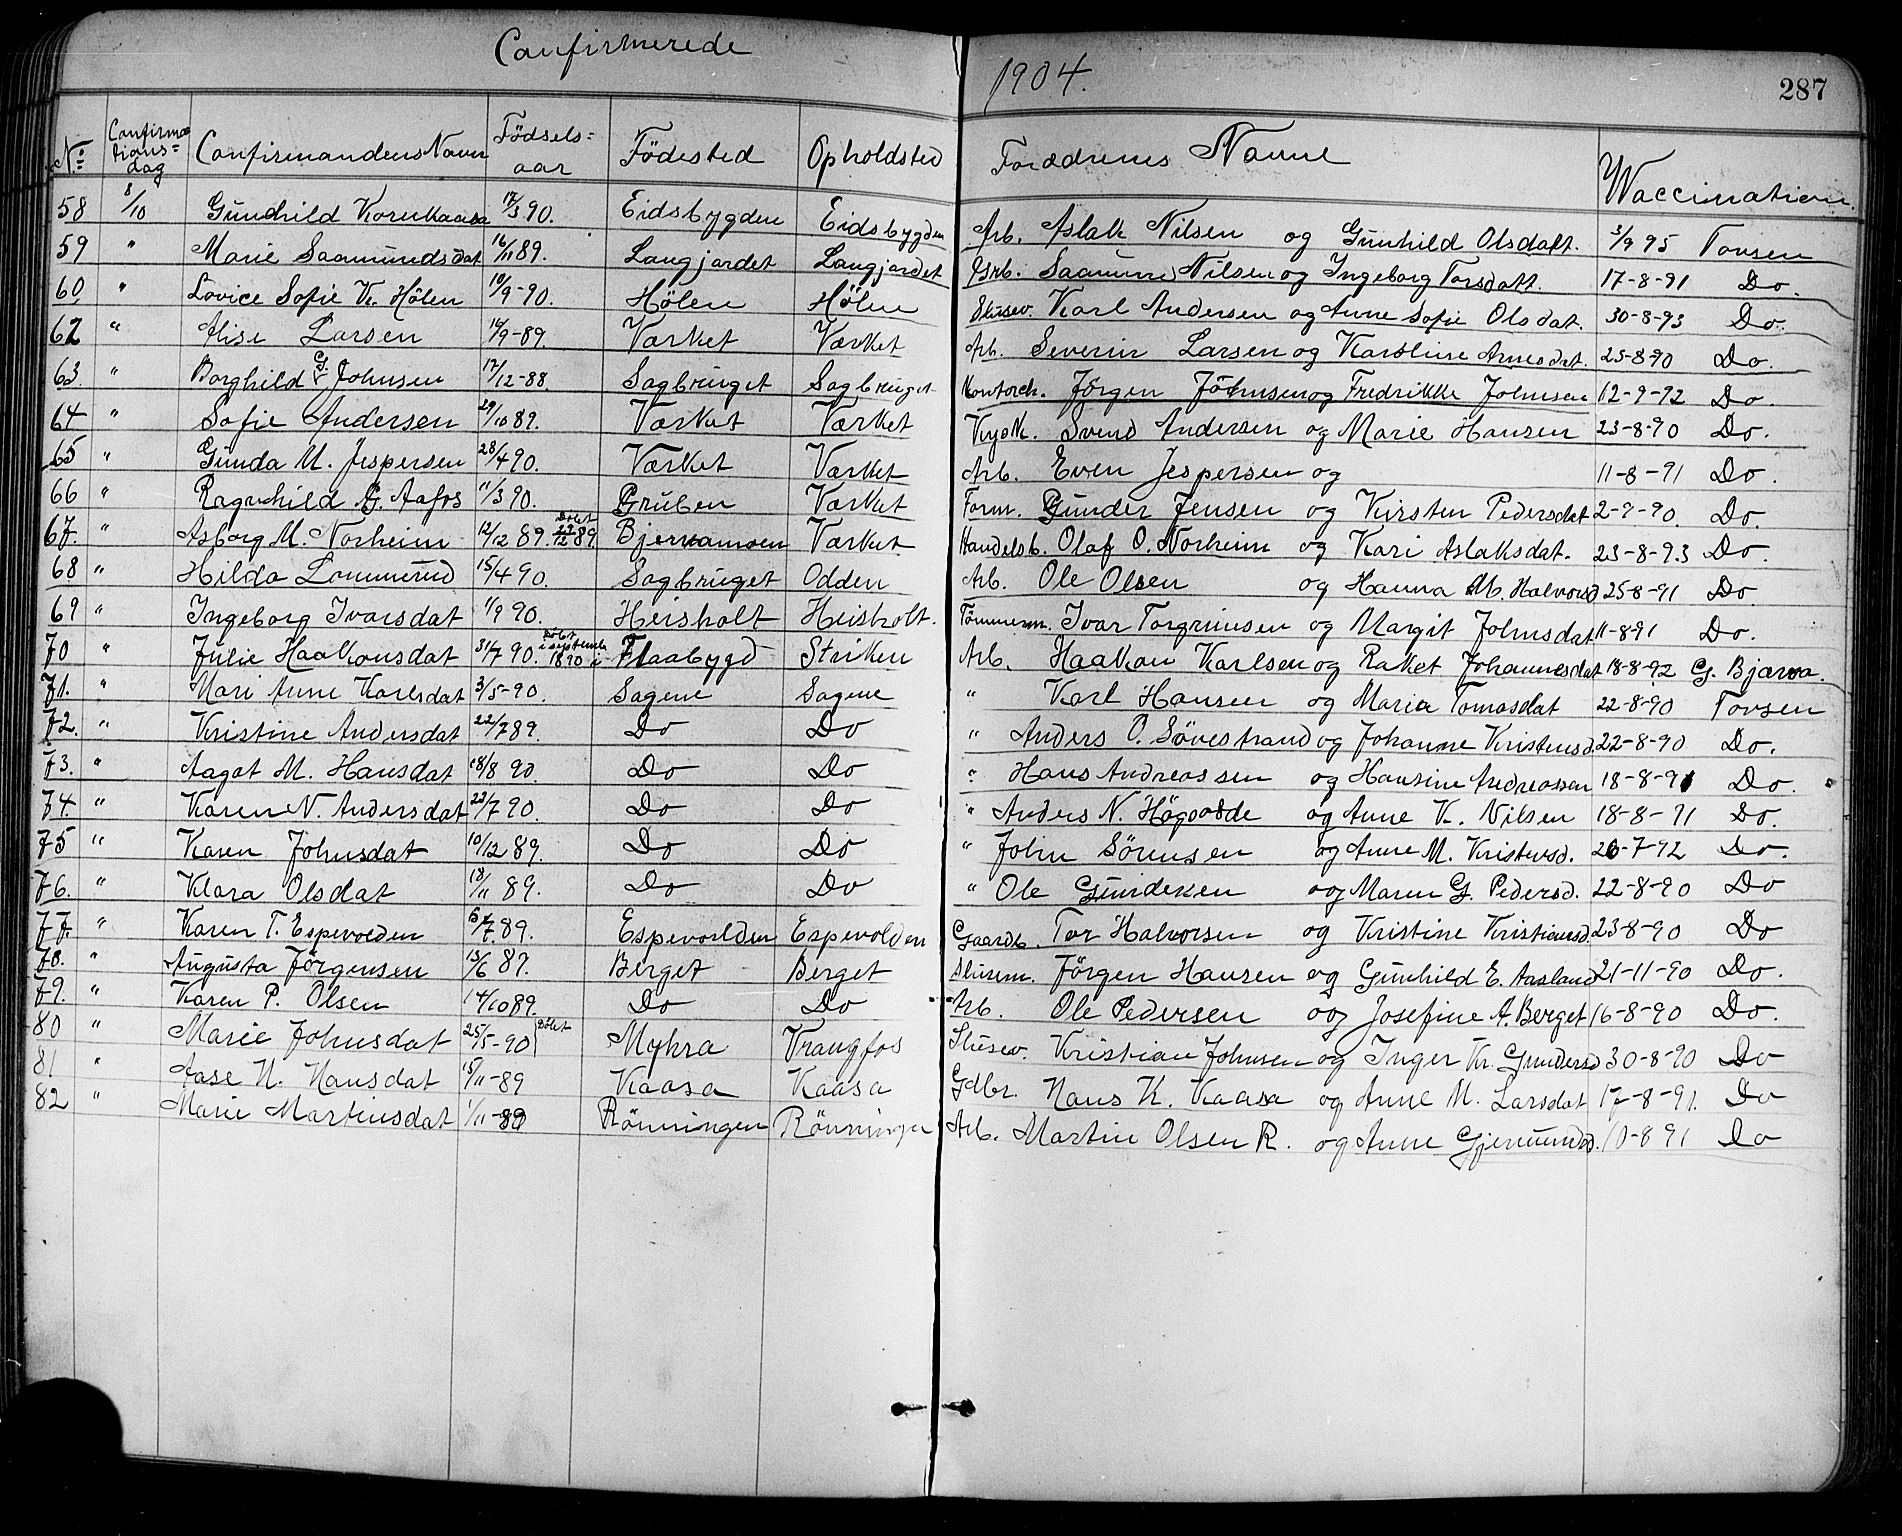 Confirmerede
1904.
287
No: Confirmationsdag Confirmandens Navn Fødselsaar Födested Opholdsted Forædrenes Navne Waccination
58 8/10 Gunhild Kornkaasa 17/3 90. Eidsbygden Eidsbygden Arb. Aslak Nilsen og Gunhild Olsdatt. 3/9 95 Tovsen
59 " Marie Saamundsdat 16/11 89. Langjordet Langjordet Saamund Nilsen og Ingeborg Torsdatt. 17-8-91 Do.
60 " Lovice Sofie K. Hölen 10/9-90. Hölen Hölen Slusev. Karl Andersen og Anne Sofie Olsdat. 30-8-93 Do.
62 " Alise Larsen 14/9-89. Værket Værket Arb. Severin Larsen og Karoline Arnesdat. 25-8-90 Do.
63. " Borghild G. Johnsen 17/12-88. Sagbruget Sagbruget Kontorch. Jörgen Johnsen og Fredrikke Johnsen 12-9-92 Do.
64 " Sofie Andersen 29/10 89. Værket Værket Svend Andersen og Marie Hansen 23-8-90 Do.
65 " Gunda M. Jespersen 28/4 90. Værket Værket Arb. Even Jespersen og 11-8-91 Do.
66 " Ragnhild G. Aafos 11/3 90. Gruben Værket Form. Gunder Jensen og Kirsten Pedersdat 2-9-90. Do.
67. " Asborg M. Norheim 12/12 89. Döbt 29/12 89. Bjervamoen Værket Handelsb. Olaf O. Norheim og Kari Aslaksdat. 23-8-93 Do.
68 " Hilda Lommerud 15/4 90. Sagbruget Odden Arb. Ole Olsen og Hanna M. Halvorsd 25-8-91 Do.
69 " Ingeborg Ivarsdat 1/9 90. Heisholt Heisholt. Tömmerm. Ivar Torgrimsen og Margit Johnsdat 11-8-91 Do.
70 " Julie Haakonsdat 31/7 90. Döbt i septembr 1890 i Flaabygd Striken Arb. Haakon Karlsen og Rakel Johannesdat 18-8-92 G. Bjarva.
71. " Mari Anne Karlsdat 3/5-90. Sagene Sagene " Karl Hansen og Maria Tomasdat 22-8-90 Tovsen
72. " Kristine Andersdat 22/7 89. Do Do " Anders O. Sövestrand og Johanne Kristensd. 22-8-90 Do.
73. " Aagot M. Hansdat 18/8 90. Do Do " Hans Andreassen og Hansine Andreassen 18-8-91 Do.
74. " Karen N. Andersdat 23/7 90. Do Do " Anders N. Högvolde og Anne K. Nilsen 18-8-91 Do.
75 " Karen Johnsdat 10/12 89. Do Do " John Sörensen og Anne M. Kristensd. 26-7-92 Do.
76. " Klara Olsdat 18/11 89. Do Do " Ole Gundersen og Maren G. Pedersd. 22-8-90 Do
77. " Karen T. Espevolden 6/7 89. Espevolden Espevolden Gaardb. Tor Halvorsen og Kristine Kristiansd. 23-8-90 Do
78. " Augusta Jörgensen 13/6 87. Berget Berget Slusem. Jörgen Hansen og Gunhild E. Aasland 21-11-90 Do.
79. " Karen P. Olsen 14/10 89. Do Do Arb. Ole Pedersen og Josefine A. Berget 16-8-90 Do.
80 " Marie Johnsdat 25/5-90 Döbt Mykra Vrangfos Slusev. Kristian Johnsen og Inger Kr. Gundersd 30-8-90 Do
81 " Aase H. Hansdat 15/11-89 Kaasa Kaasa Gdbr. Hans K. Kaasa og Anne M. Larsdat 17-8-91. Do
82 " Marie Martinsdat 1/11-89 Rönningen Rönningen Arb. Martin Olsen R. og Anne Gjermundsd. 10-8 91 Do